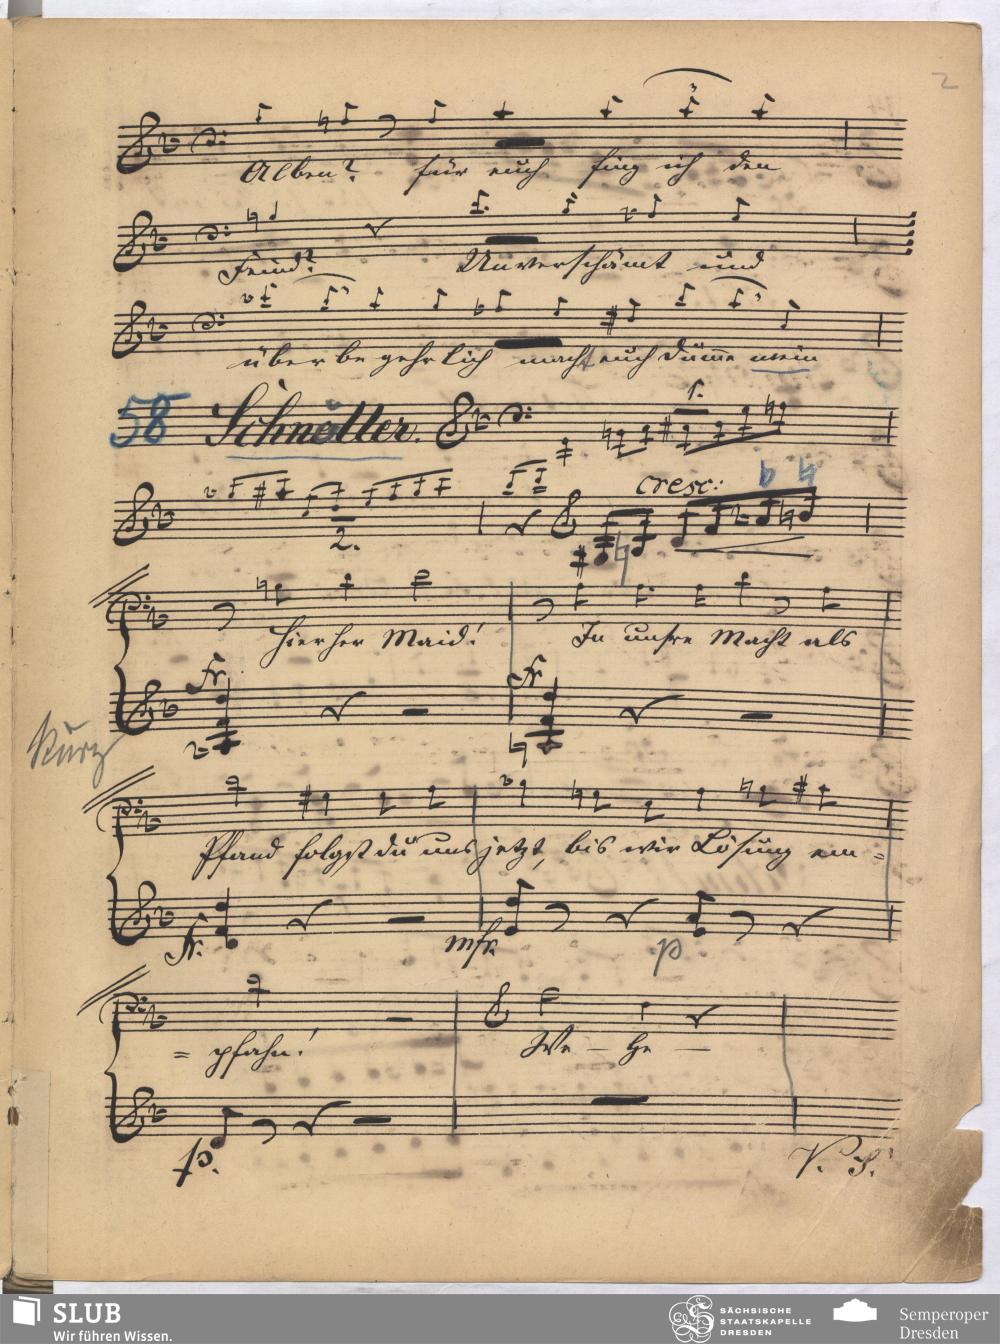 2
Alben? für euch fing ich den
Feind? Unverschämt und
überbegehrlich macht euch Dumme mein
58 Schneller. 1.
cresc:
2.
Hierher Maid! In unsre Macht als
Fr. Fr.
Kurz
Pfand folgst du uns jetzt, bis wir Lösung em-
Fr. mfr. p
= pfahn! We - he -
p.
V. S.
SLUB
Wir führen Wissen.
SÄCHSISCHE
STAATSKAPELLE
DRESDEN
Semperoper
Dresden